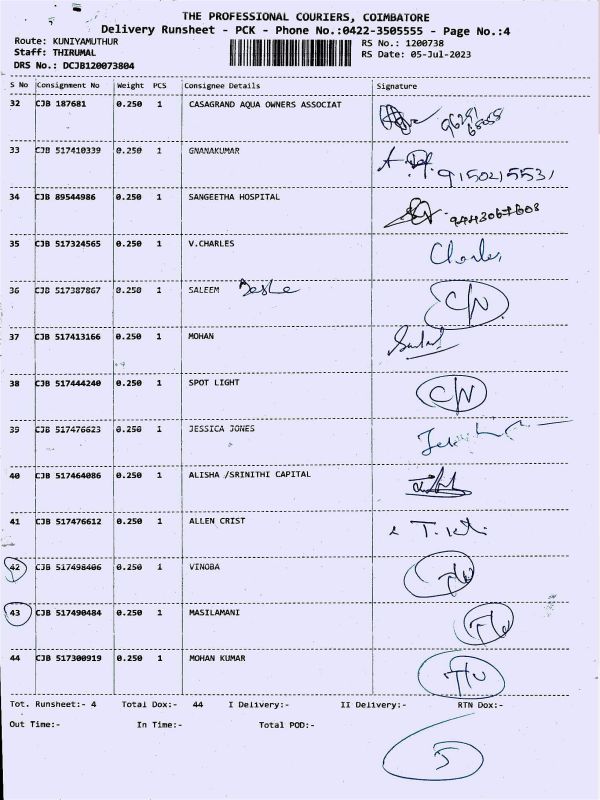 THE PROFESSIONAL COURIERS, COIMBATORE
Delivery Runsheet - PCK - Phone No.:0422-3505555 - Page No.:4
Route: KUNIYAMUTHUR RS No.: 1200738
Staff: THIRUMAL RS Date: 05-Jul-2023
DRS No.: DCJB120073804
S No Consignment No Weight PCS Consignee Details Signature
32 CJB 187681 0.250 1 CASAGRAND AQUA OWNERS ASSOCIAT
33 CJB 517410339 0.250 1 GNANAKUMAR 9150215531
34 CJB 89544986 0.250 1 SANGEETHA HOSPITAL
35 CJB 517324565 0.250 1 V.CHARLES Charles
36 CJB 517387867 0.250 1 SALEEM C/N
37 CJB 517413166 0.250 1 MOHAN
38 CJB 517444240 0.250 1 SPOT LIGHT C/N
39 CJB 517476623 0.250 1 JESSICA JONES
40 CJB 517464086 0.250 1 ALISHA /SRINITHI CAPITAL
41 CJB 517476612 0.250 1 ALLEN CRIST
42 CJB 517498406 0.250 1 VINOBA
43 CJB 517490484 0.250 1 MASILAMANI
44 CJB 517300919 0.250 1 MOHAN KUMAR
Tot. Runsheet:- 4 Total Dox:- 44 I Delivery:- II Delivery:- RTN Dox:-
Out Time:- In Time:- Total POD:-
5